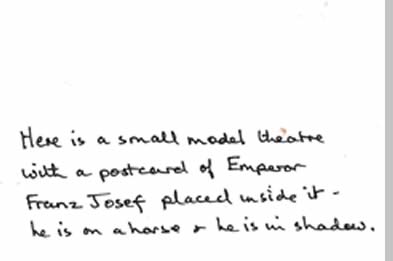 Here is a small model theatre
with a postcard of Emperor
Franz Josef placed inside it -
he is on a horse & he is in shadow.